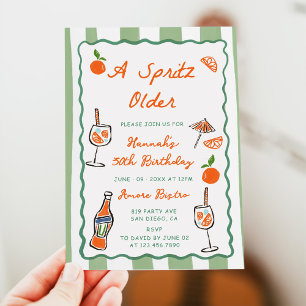 A Spritz
Older
PLEASE JOIN US FOR
Hannah's
30th Birthday
JUNE · 09 · 20XX AT 12PM
Amore Bistro
819 PARTY AVE
SAN DIEGO, CA
RSVP
TO DAVID BY JUNE 02
AT 123.456.7890